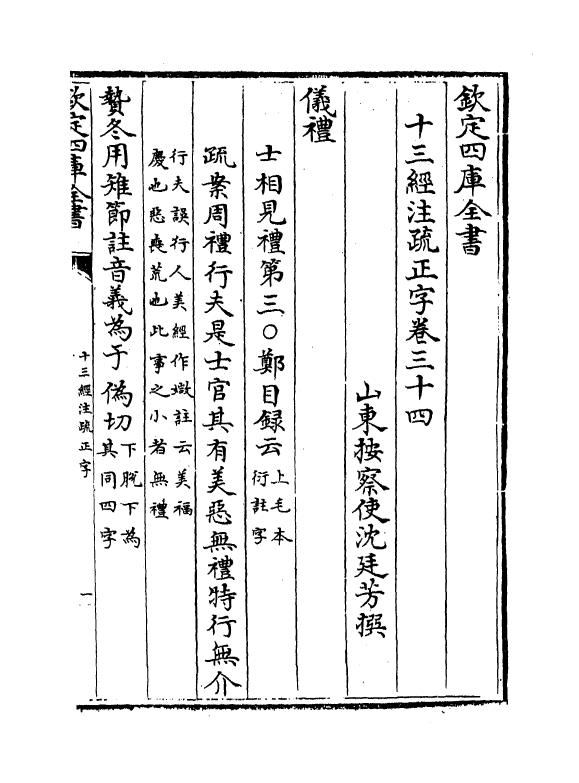 欽定四庫全書
十三經注疏正字卷三十四
山東按察使沈廷芳撰
儀禮
士相見禮第三○鄭目録云上毛本衍註字
疏案周禮行夫是士官其有美惡無禮特行無介
行夫誤行人美經作媺註云美福
慶也惡喪荒也此事之小者無禮
贄冬用雉節註音義為于偽切下脱下為其同四字
欽定四庫全書
十三經注疏正字
一